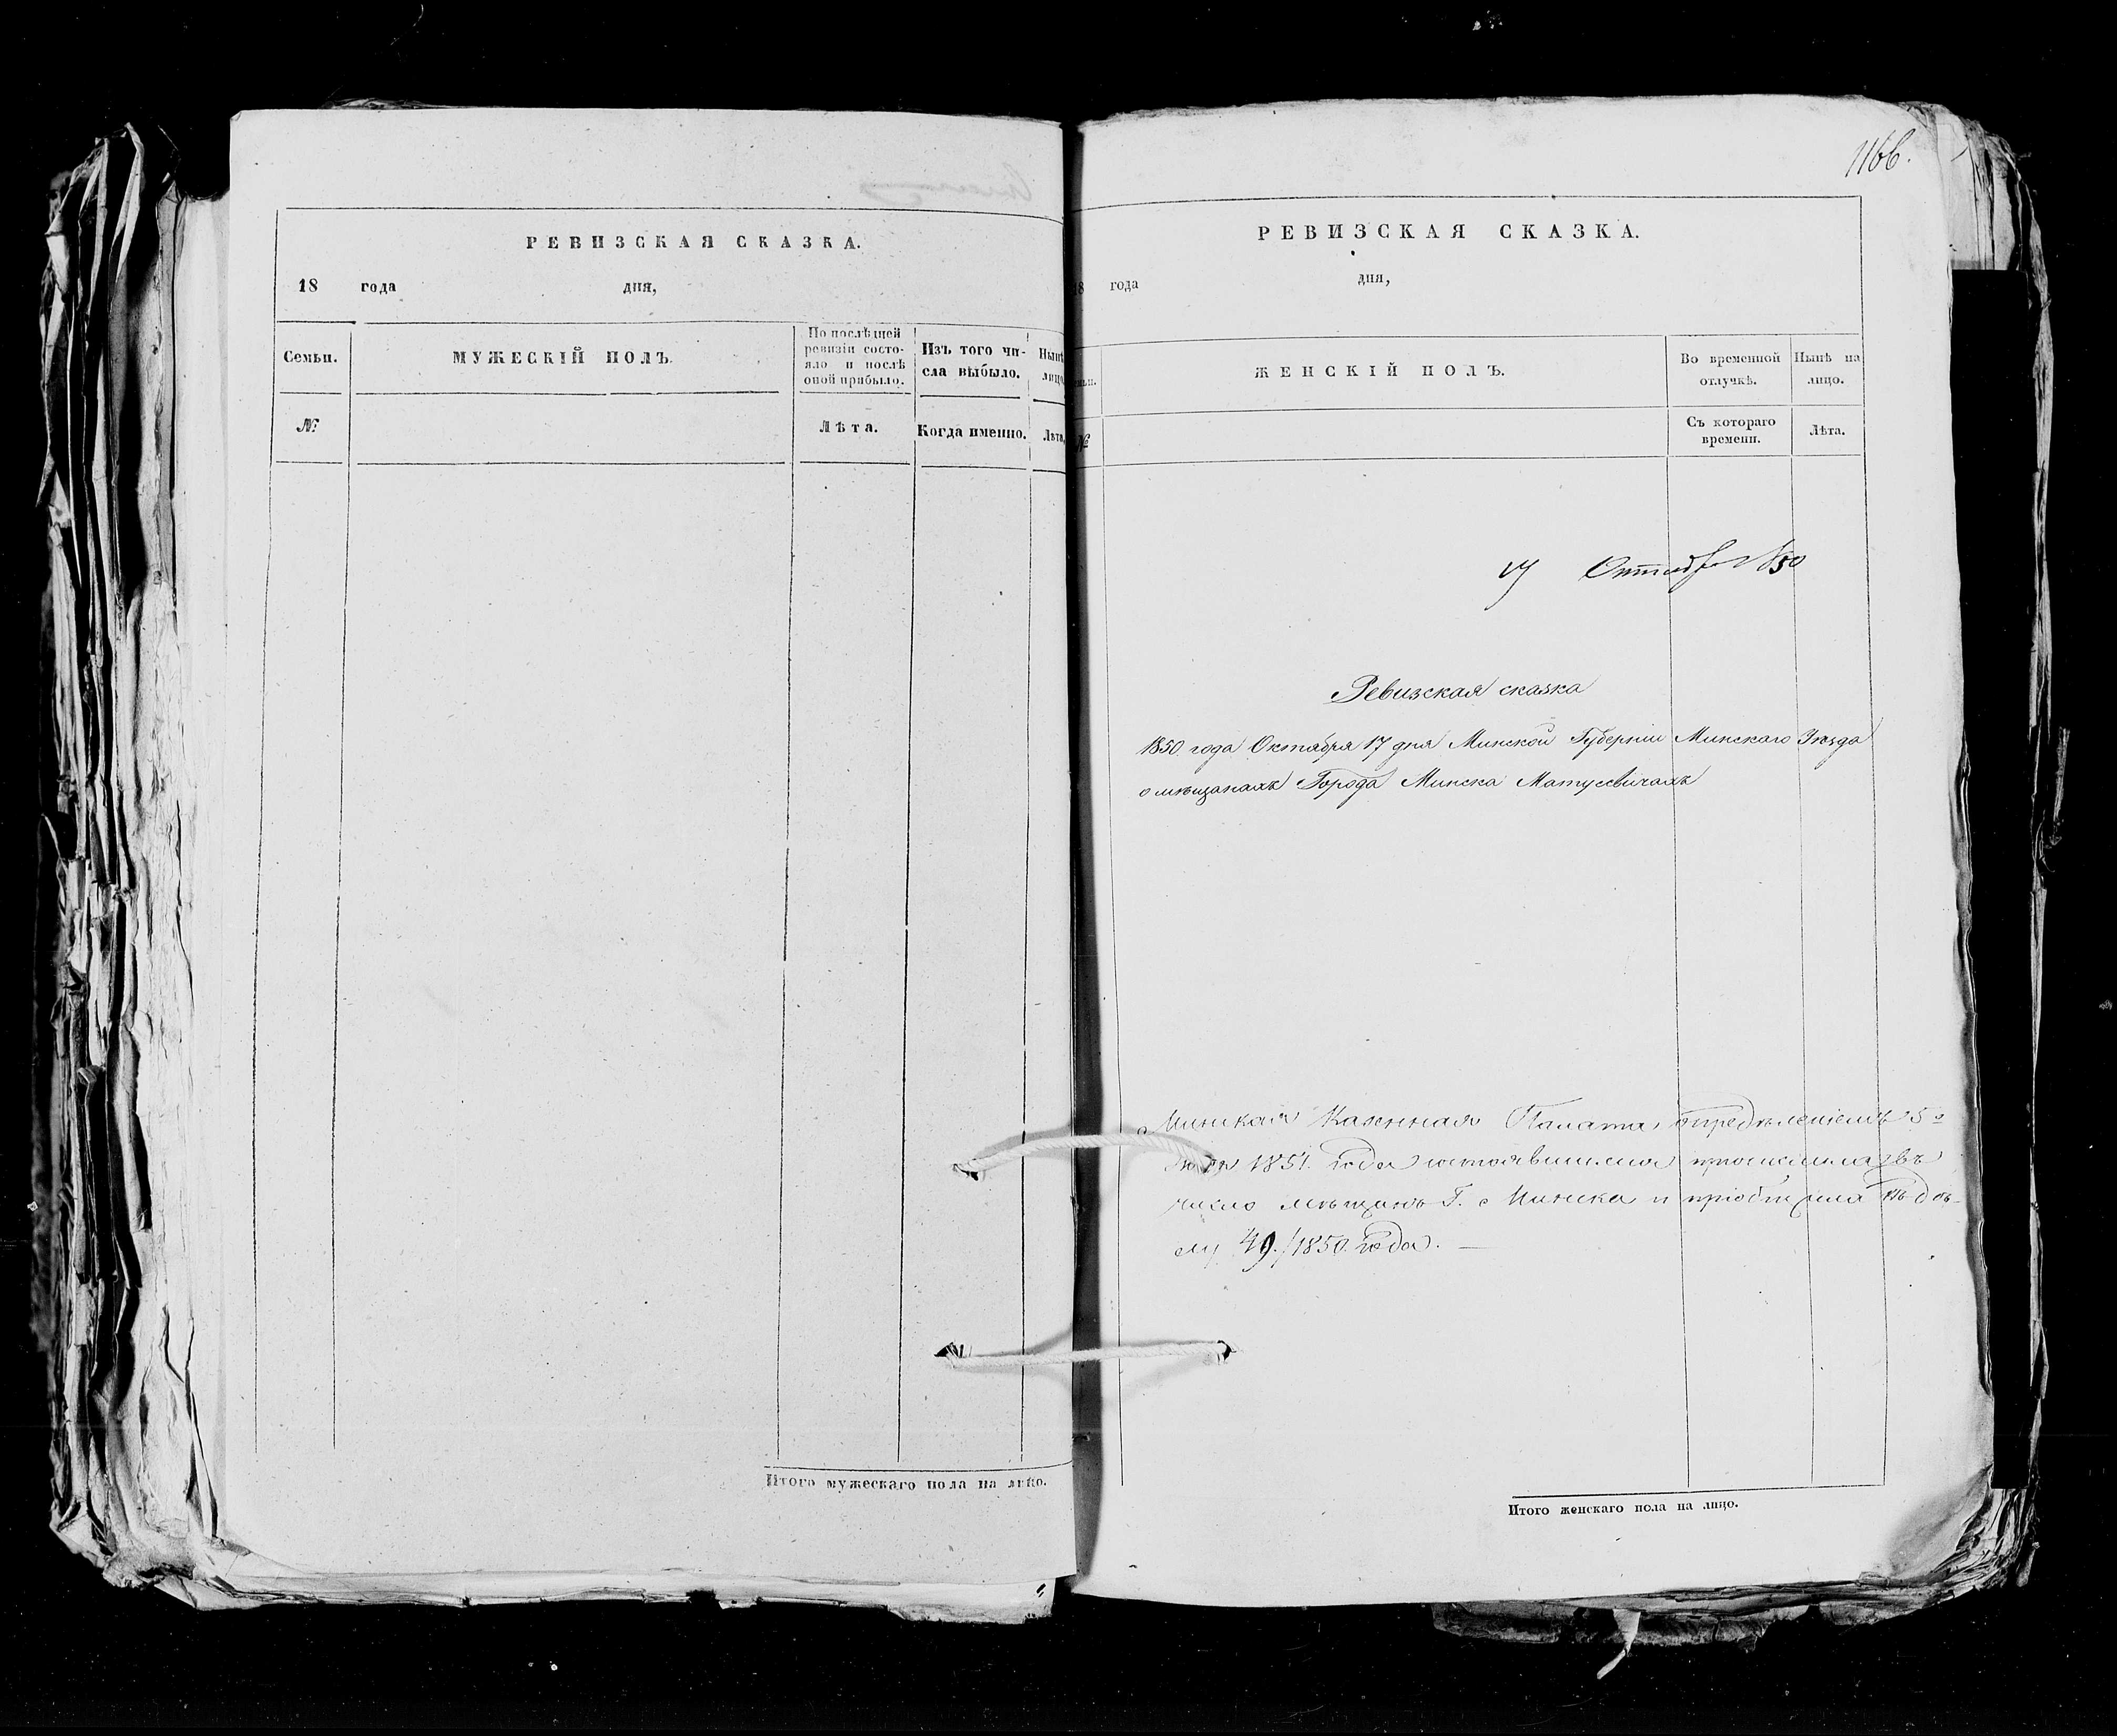 РЕВИЗСКАЯ СКАЗКА.
18 года дня,
Семьи.
МУЖЕСКІЙ ПОЛЪ.
По послѣдней
ревизіи состо-
яло и послѣ
оной прибыло.
Изъ того чи-
сла выбыло.
Нынѣ
лицо
№
Лѣта.
Когда именно.
Лѣта.
Итого мужескаго пола на лицо.
1166.
РЕВИЗСКАЯ СКАЗКА.
18 года дня,
ЖЕНСКІЙ ПОЛЪ.
Во временной
отлучкѣ.
Нынѣ на
лицо.
№
Съ котораго
времени.
Лѣта.
17 Октября 1850
Ревизская сказка
1850 года Октября 17 дня Минской Губерніи Минскаго Уѣзда
о мѣщанахъ Города Минска Матусевичахъ
Минская Казенная Палата, опредѣленіемъ 5
1851. года состоявшимся причислила въ
число мѣщанъ Г. Минска и пріобщила къ дѣ-
лу 49./1850. года. —
Итого женскаго пола на лицо.